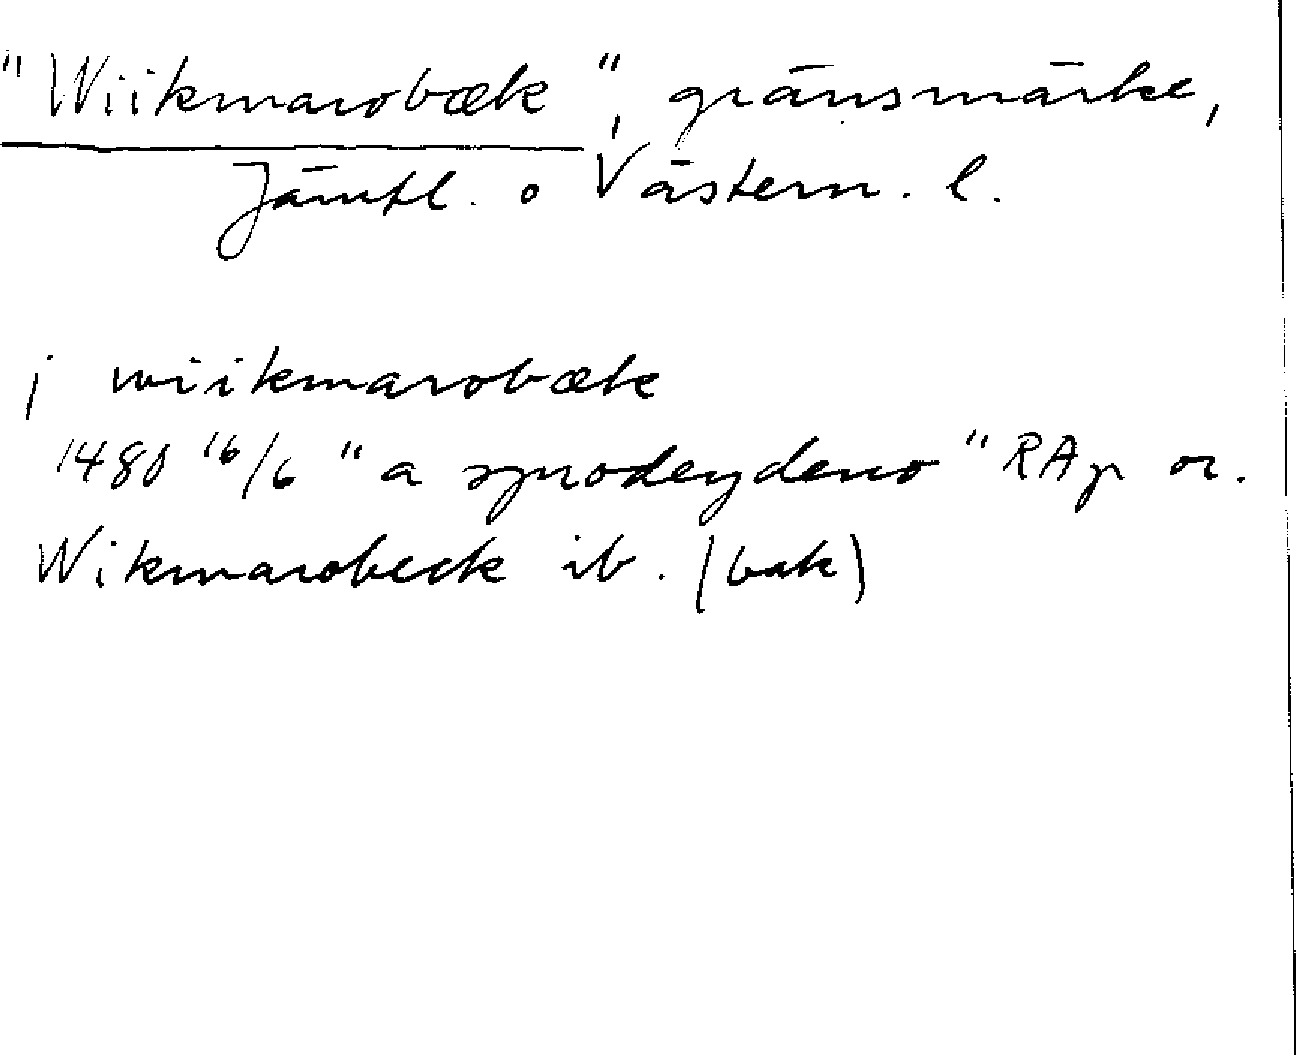 "Wiikmarobæk", gränsmärke,
Jämtl. o Västern. l.
j wiikmarobæk
1480 16/6 "a sprodeydeno" RAp or.
Wikmarobeck ib. (bak)